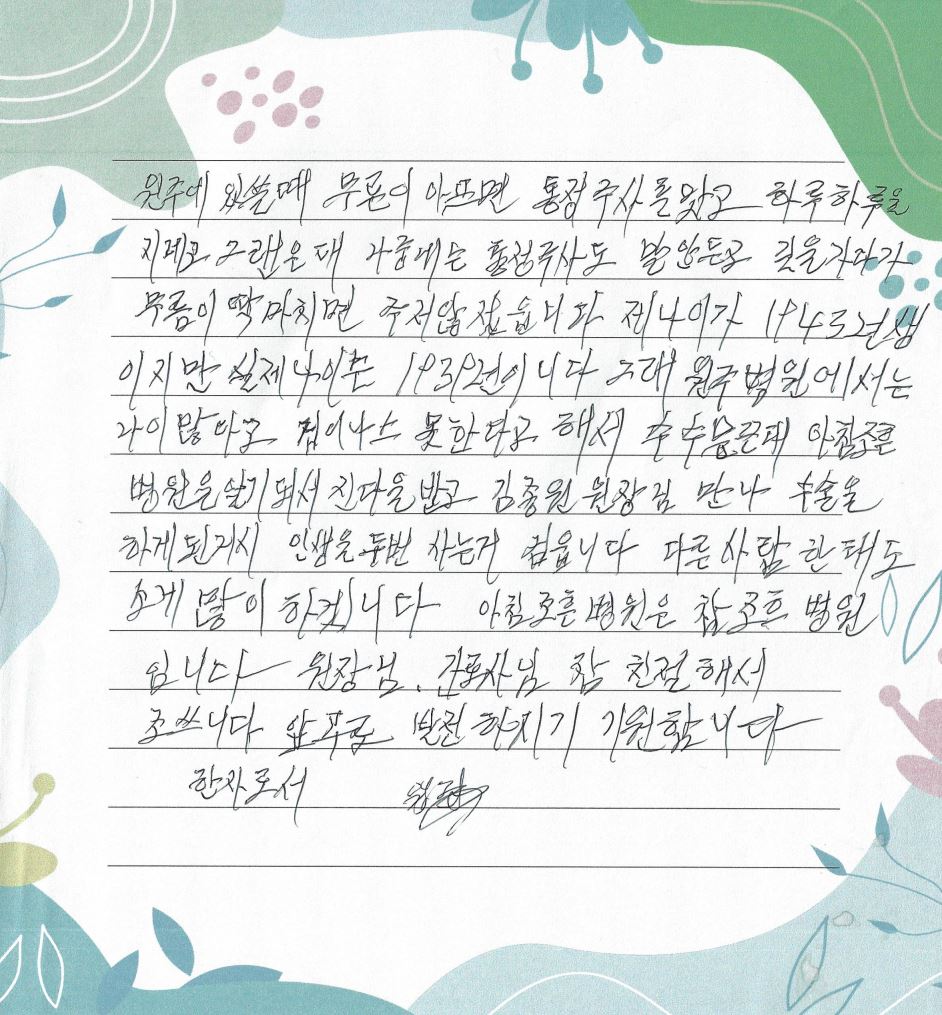 원주에 있쓸때 무릎이 아프면 통점주사를 맞고 하루하루을
지네고 그랜은대 나중에는 통점주사도 말안듣고 길을가다가
무릎이 딱마치면 주저앉젔읍니다 제나이가 1943년생
이지만 실제나이는 1939년이니다 그래 원주병원에서는
나이많아고 집이나스 못한다고 해서 수수문끈대 아침조흔
병원은알기되서 진다을받고 김종원원장님 만나 수술을
하게된거시 인생을두번 사는거 검읍니다 다른사람한태도
소게 많이 하겄니다 아침조흔병원은 참조흔 병원
입니다 원장님. 간호사님 참 친절해서
조쓰니다 앞우로 발전하시기 기원합니다
한자로서